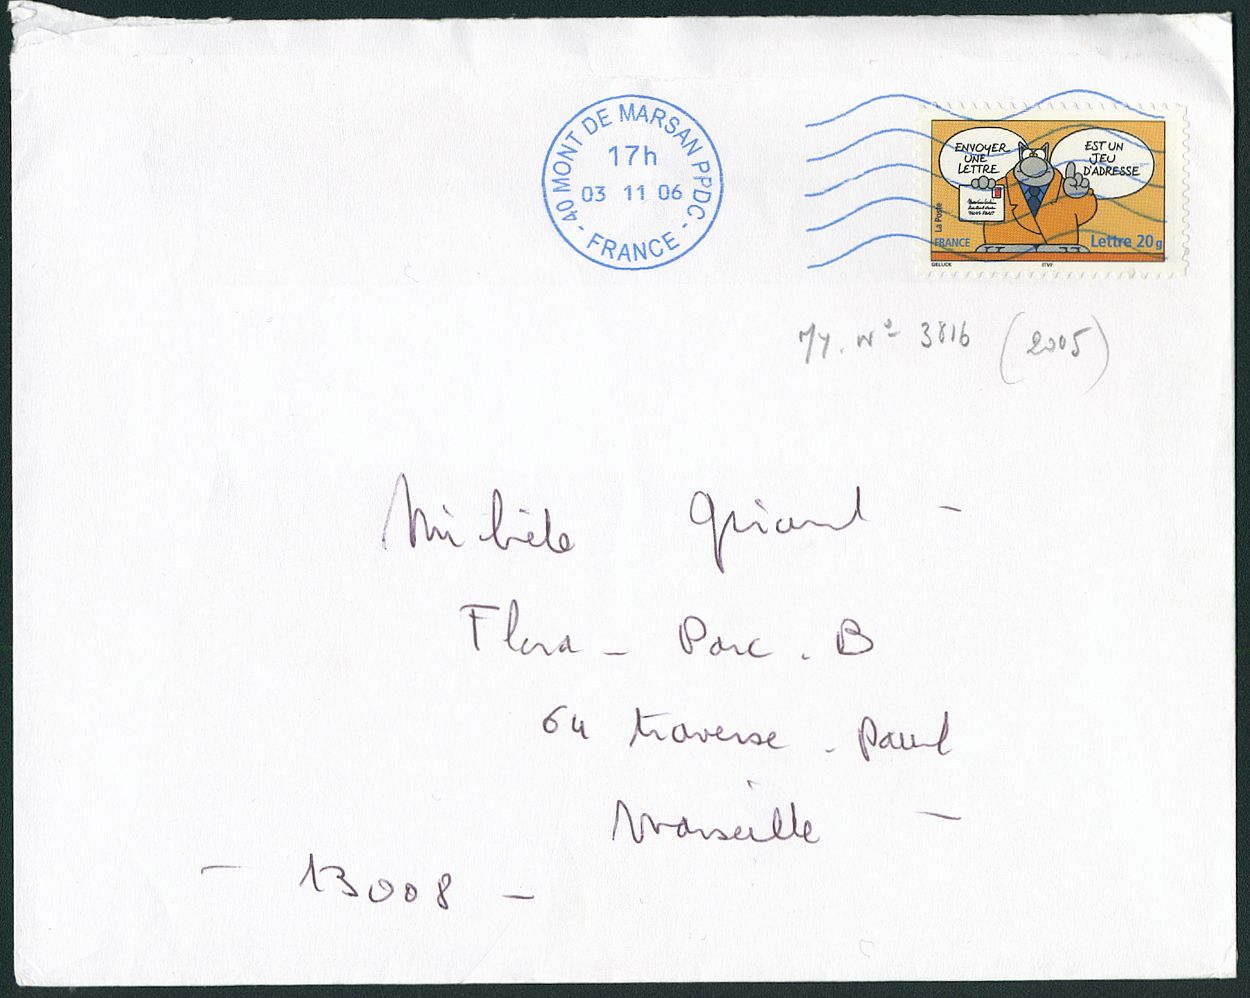 40 MONT DE MARSAN PPDC
17h
03 11 06
- FRANCE -
ENVOYER
UNE
LETTRE
EST UN
JEU
D'ADRESSE
La Poste
FRANCE
Lettre 20g
GELUCK
ITVF
N° 3816 (2005)
Michèle -
Flora - Parc . B
64 traverse . Paul
Marseille -
- 13008 -